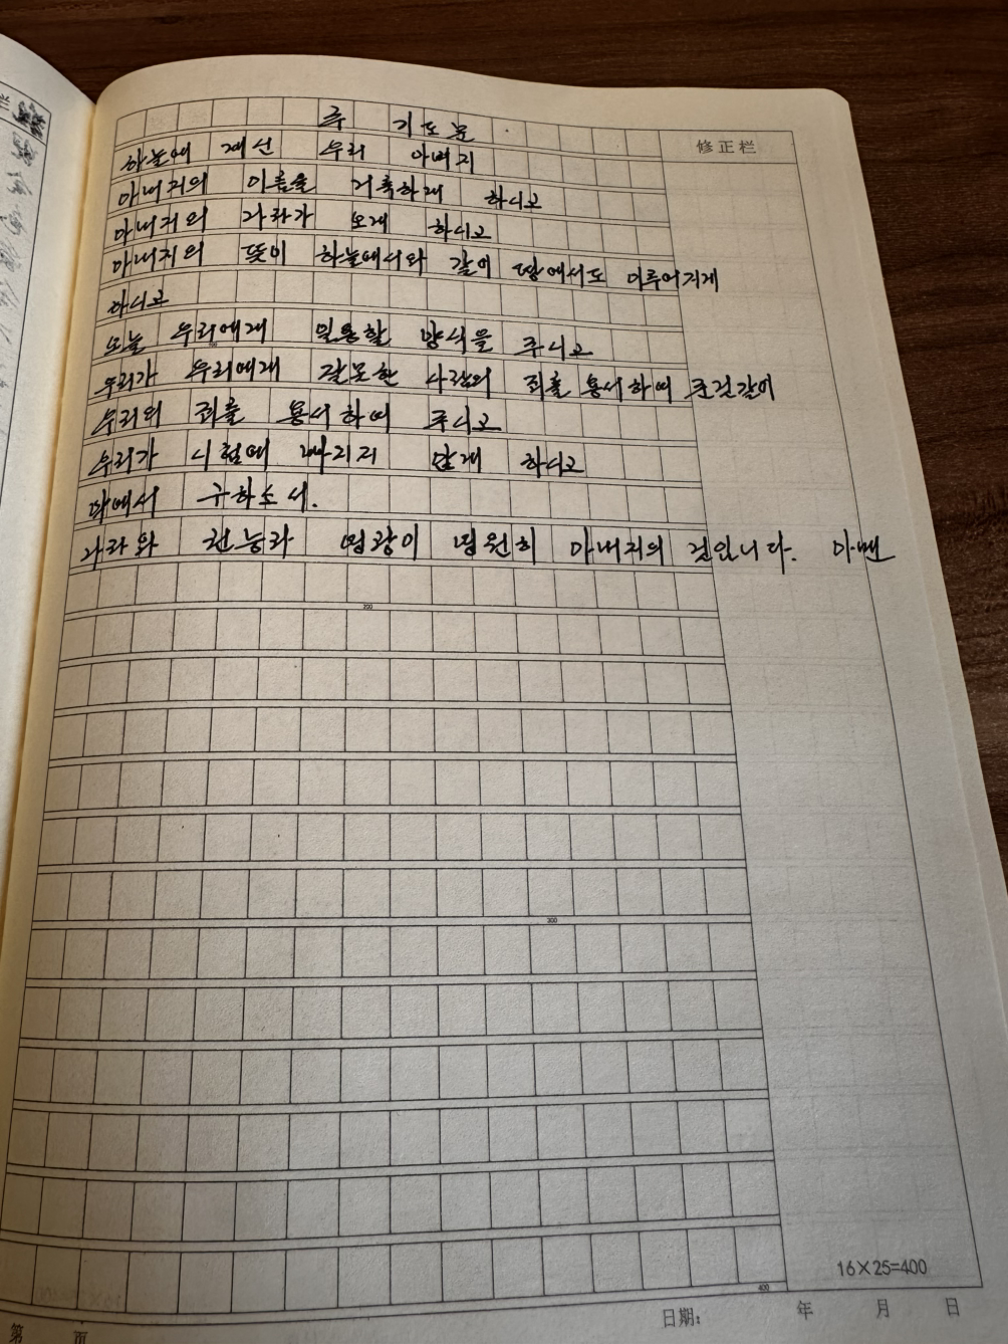 주 기도문
修正栏
하늘에 계신 우리 아버지
아버지의 이름을 거룩하게 하시고
아버지의 나라가 오게 하시고
아버지의 뜻이 하늘에서와 같이 땅에서도 이루어지게
하시고
오늘 우리에게 일용할 양식을 주시고
우리가 우리에게 잘못한 사람의 죄를 용서하여 준것같이
우리의 죄를 용서하여 주시고
우리가 시험에 빠지지 않게 하시고
악에서 구하소서.
나라와 권능과 영광이 영원히 아버지의 것입니다. 아멘
200
300
400
16×25=400
第 页
日期: 年 月 日